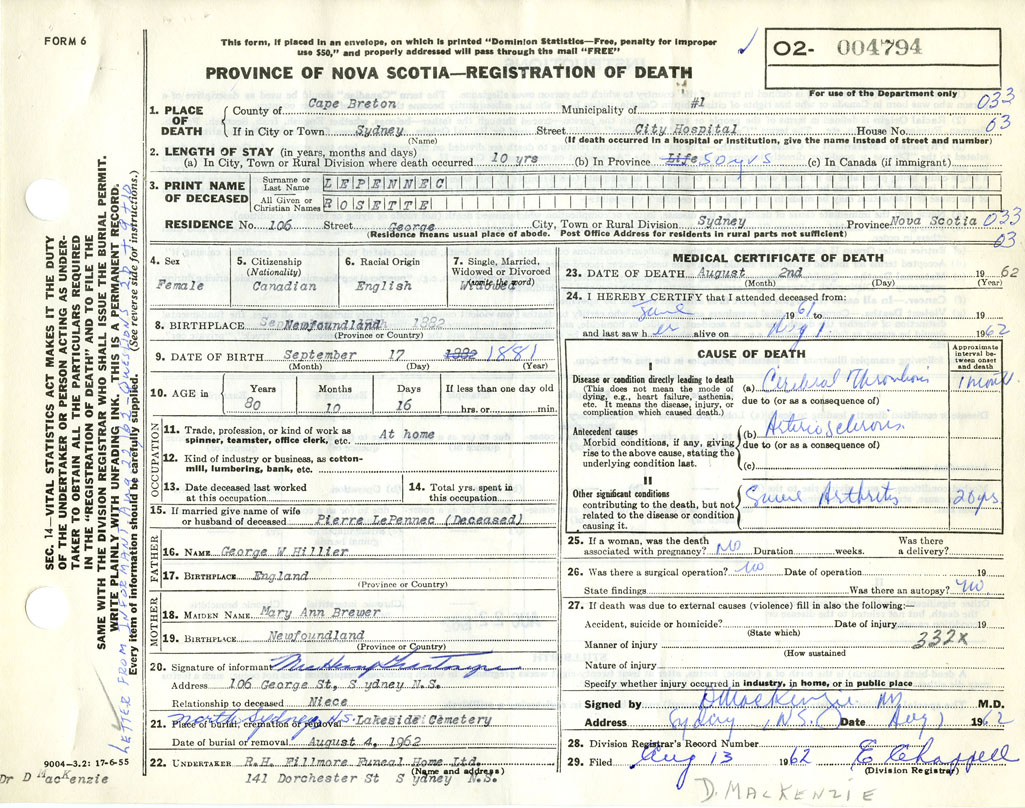 FORM 6
This form, if placed in an envelope, on which is printed "Dominion Statistics—Free, penalty for improper
use $50," and properly addressed will pass through the mail "FREE"
02- 004794
PROVINCE OF NOVA SCOTIA—REGISTRATION OF DEATH
For use of the Department only
033
03
1. PLACE OF DEATH
County of Cape Breton Municipality of #1
If in City or Town Sydney Street City Hospital House No.
(Name) (If death occurred in a hospital or institution, give the name instead of street and number)
2. LENGTH OF STAY (in years, months and days)
(a) In City, Town or Rural Division where death occurred 10 yrs (b) In Province Life 50 yrs (c) In Canada (if immigrant)
3. PRINT NAME OF DECEASED
Surname or Last Name LEPENNEC
All Given or Christian Names ROSETTE
RESIDENCE No. 106 Street George City, Town or Rural Division Sydney Province Nova Scotia 033
(Residence means usual place of abode. Post Office Address for residents in rural parts not sufficient) 03
4. Sex
Female
5. Citizenship
(Nationality)
Canadian
6. Racial Origin
English
7. Single, Married,
Widowed or Divorced
(write the word)
Widowed
8. BIRTHPLACE Newfoundland
(Province or Country)
9. DATE OF BIRTH September 17 1882 1881
(Month) (Day) (Year)
10. AGE in
Years 80
Months 10
Days 16
If less than one day old
hrs. or min.
OCCUPATION
11. Trade, profession, or kind of work as
spinner, teamster, office clerk, etc. At home
12. Kind of industry or business, as cotton-
mill, lumbering, bank, etc.
13. Date deceased last worked
at this occupation
14. Total yrs. spent in
this occupation
15. If married give name of wife
or husband of deceased Pierre LePennec (Deceased)
FATHER
16. NAME George W Hillier
17. BIRTHPLACE England
(Province or Country)
MOTHER
18. MAIDEN NAME Mary Ann Brewer
19. BIRTHPLACE Newfoundland
(Province or Country)
20. Signature of informant
Address 106 George St, S ydney N.S.
Relationship to deceased Niece
21. Place of burial, cremation or removal North Sydney N.S. Lakeside Cemetery
Date of burial or removal August 4, 1962
22. UNDERTAKER R.H. Fillmore Funeal Home Ltd.
(Name and address)
141 Dorchester St S ydney N.S.
MEDICAL CERTIFICATE OF DEATH
23. DATE OF DEATH August 2nd 1962
(Month) (Day) (Year)
24. I HEREBY CERTIFY that I attended deceased from:
June 1961 to
and last saw h er alive on Aug 1 1962
CAUSE OF DEATH
Approximate
interval be-
tween onset
and death
I
Disease or condition directly leading to death
(This does not mean the mode of
dying, e.g., heart failure, asthenia,
etc. It means the disease, injury, or
complication which caused death.)
(a) Cerebral Thrombosis 1 month
due to (or as a consequence of)
Antecedent causes
Morbid conditions, if any, giving
rise to the above cause, stating the
underlying condition last.
(b) Arteriosclerosis
due to (or as a consequence of)
(c)
II
Other significant conditions
contributing to the death, but not
related to the disease or condition
causing it.
Senile Arthritis 20 yrs
25. If a woman, was the death
associated with pregnancy? No Duration weeks.
Was there
a delivery?
26. Was there a surgical operation? No Date of operation 19
State findings Was there an autopsy? No
27. If death was due to external causes (violence) fill in also the following:—
Accident, suicide or homicide? Date of injury 19
(State which)
Manner of injury 332X
(How sustained
Nature of injury
Specify whether injury occurred in industry, in home, or in public place
Signed by D MacKenzie M.D.
Address Sydney, N.S. Date Aug 1962
28. Division Registrar's Record Number
29. Filed Aug 13 1962 E Chappell
(Division Registrar)
D. MACKENZIE
9004—3.2: 17-6-55
Dr D MacKenzie
SEC. 14—VITAL STATISTICS ACT MAKES IT THE DUTY
OF THE UNDERTAKER OR PERSON ACTING AS UNDER-
TAKER TO OBTAIN ALL THE PARTICULARS REQUIRED
IN THE "REGISTRATION OF DEATH" AND TO FILE THE
SAME WITH THE DIVISION REGISTRAR WHO SHALL ISSUE THE BURIAL PERMIT.
WRITE PLAINLY WITH UNFADING INK. THIS IS A PERMANENT RECORD.
LETTER FROM INFORMANT AUG 22/62 QUESTIONS 2 b + 9 +10
Every item of information should be carefully supplied. (See reverse side for instructions.)